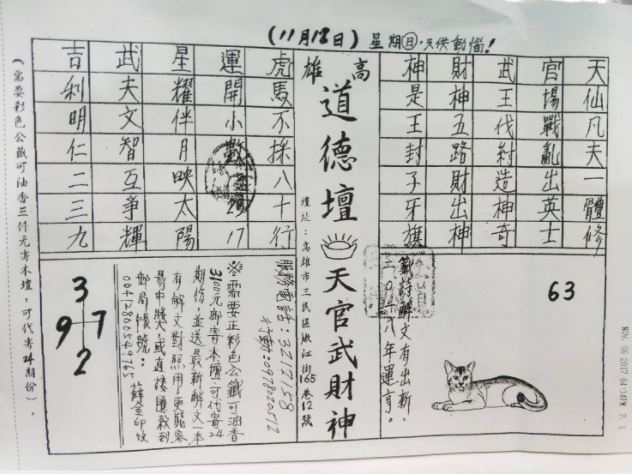 (11月12日) 星期日，只供參
天仙凡夫一體修
官場戰亂出英士
武王伐紂造神奇
財神五路財出神
神是王封子牙旗
63
籤詩解文有出新、
二〇一八年運亨。
高雄
道德壇
天官武財神
壇址：高雄市三民區嫩江街165巷12號
虎馬不採八十行
運開小數 17
星耀伴月映太陽
武夫文智互爭輝
吉利明仁二三九
服務電話：3217158
行動：0978020512
※需要正彩色公籤可油香
3100元郵寄本壇可代寄24
期份，並送最新解文一本
有解文對照用，更能容
易中獎，或直接匯款到
郵局帳號：
蘇金印收
3
9 7
2
(需要彩色公籤可油香三仟元寄本壇，可代寄24期份)。
NOV. 06 2017 04:34PM P. 1